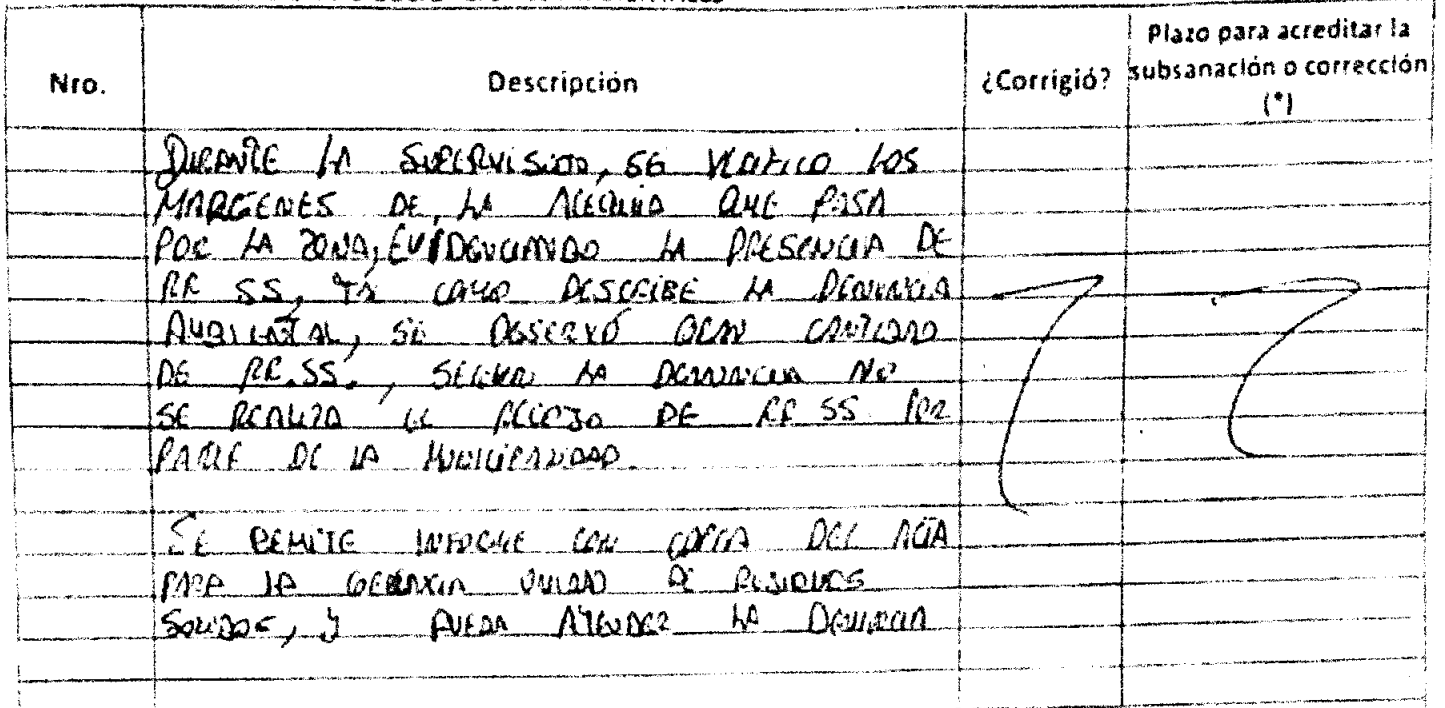 Nro. Descripción ¿Corrigió? Plazo para acreditar la subsanación o corrección (*)
DURANTE LA SUPERVISION, SE VERIFICO LOS
MARGENES DE LA ACEQUIA QUE PASA
POR LA ZONA, EVIDENCIANDO LA PRESENCIA DE
RR SS, TAL COMO DESCRIBE LA DENUNCIA
AMBIENTAL, SE OBSERVÓ GRAN CANTIDAD
DE RR.SS., SEGUN LA DENUNCIA NO
SE REALIZA EL RECOJO DE RR SS POR
PARTE DE LA MUNICIPALIDAD.
SE REMITE INFORME CON COPIA DEL ACTA
PARA LA GERENCIA UNIDAD DE RESIDUOS
SOLIDOS, Y PUEDA ATENDER LA DENUNCIA